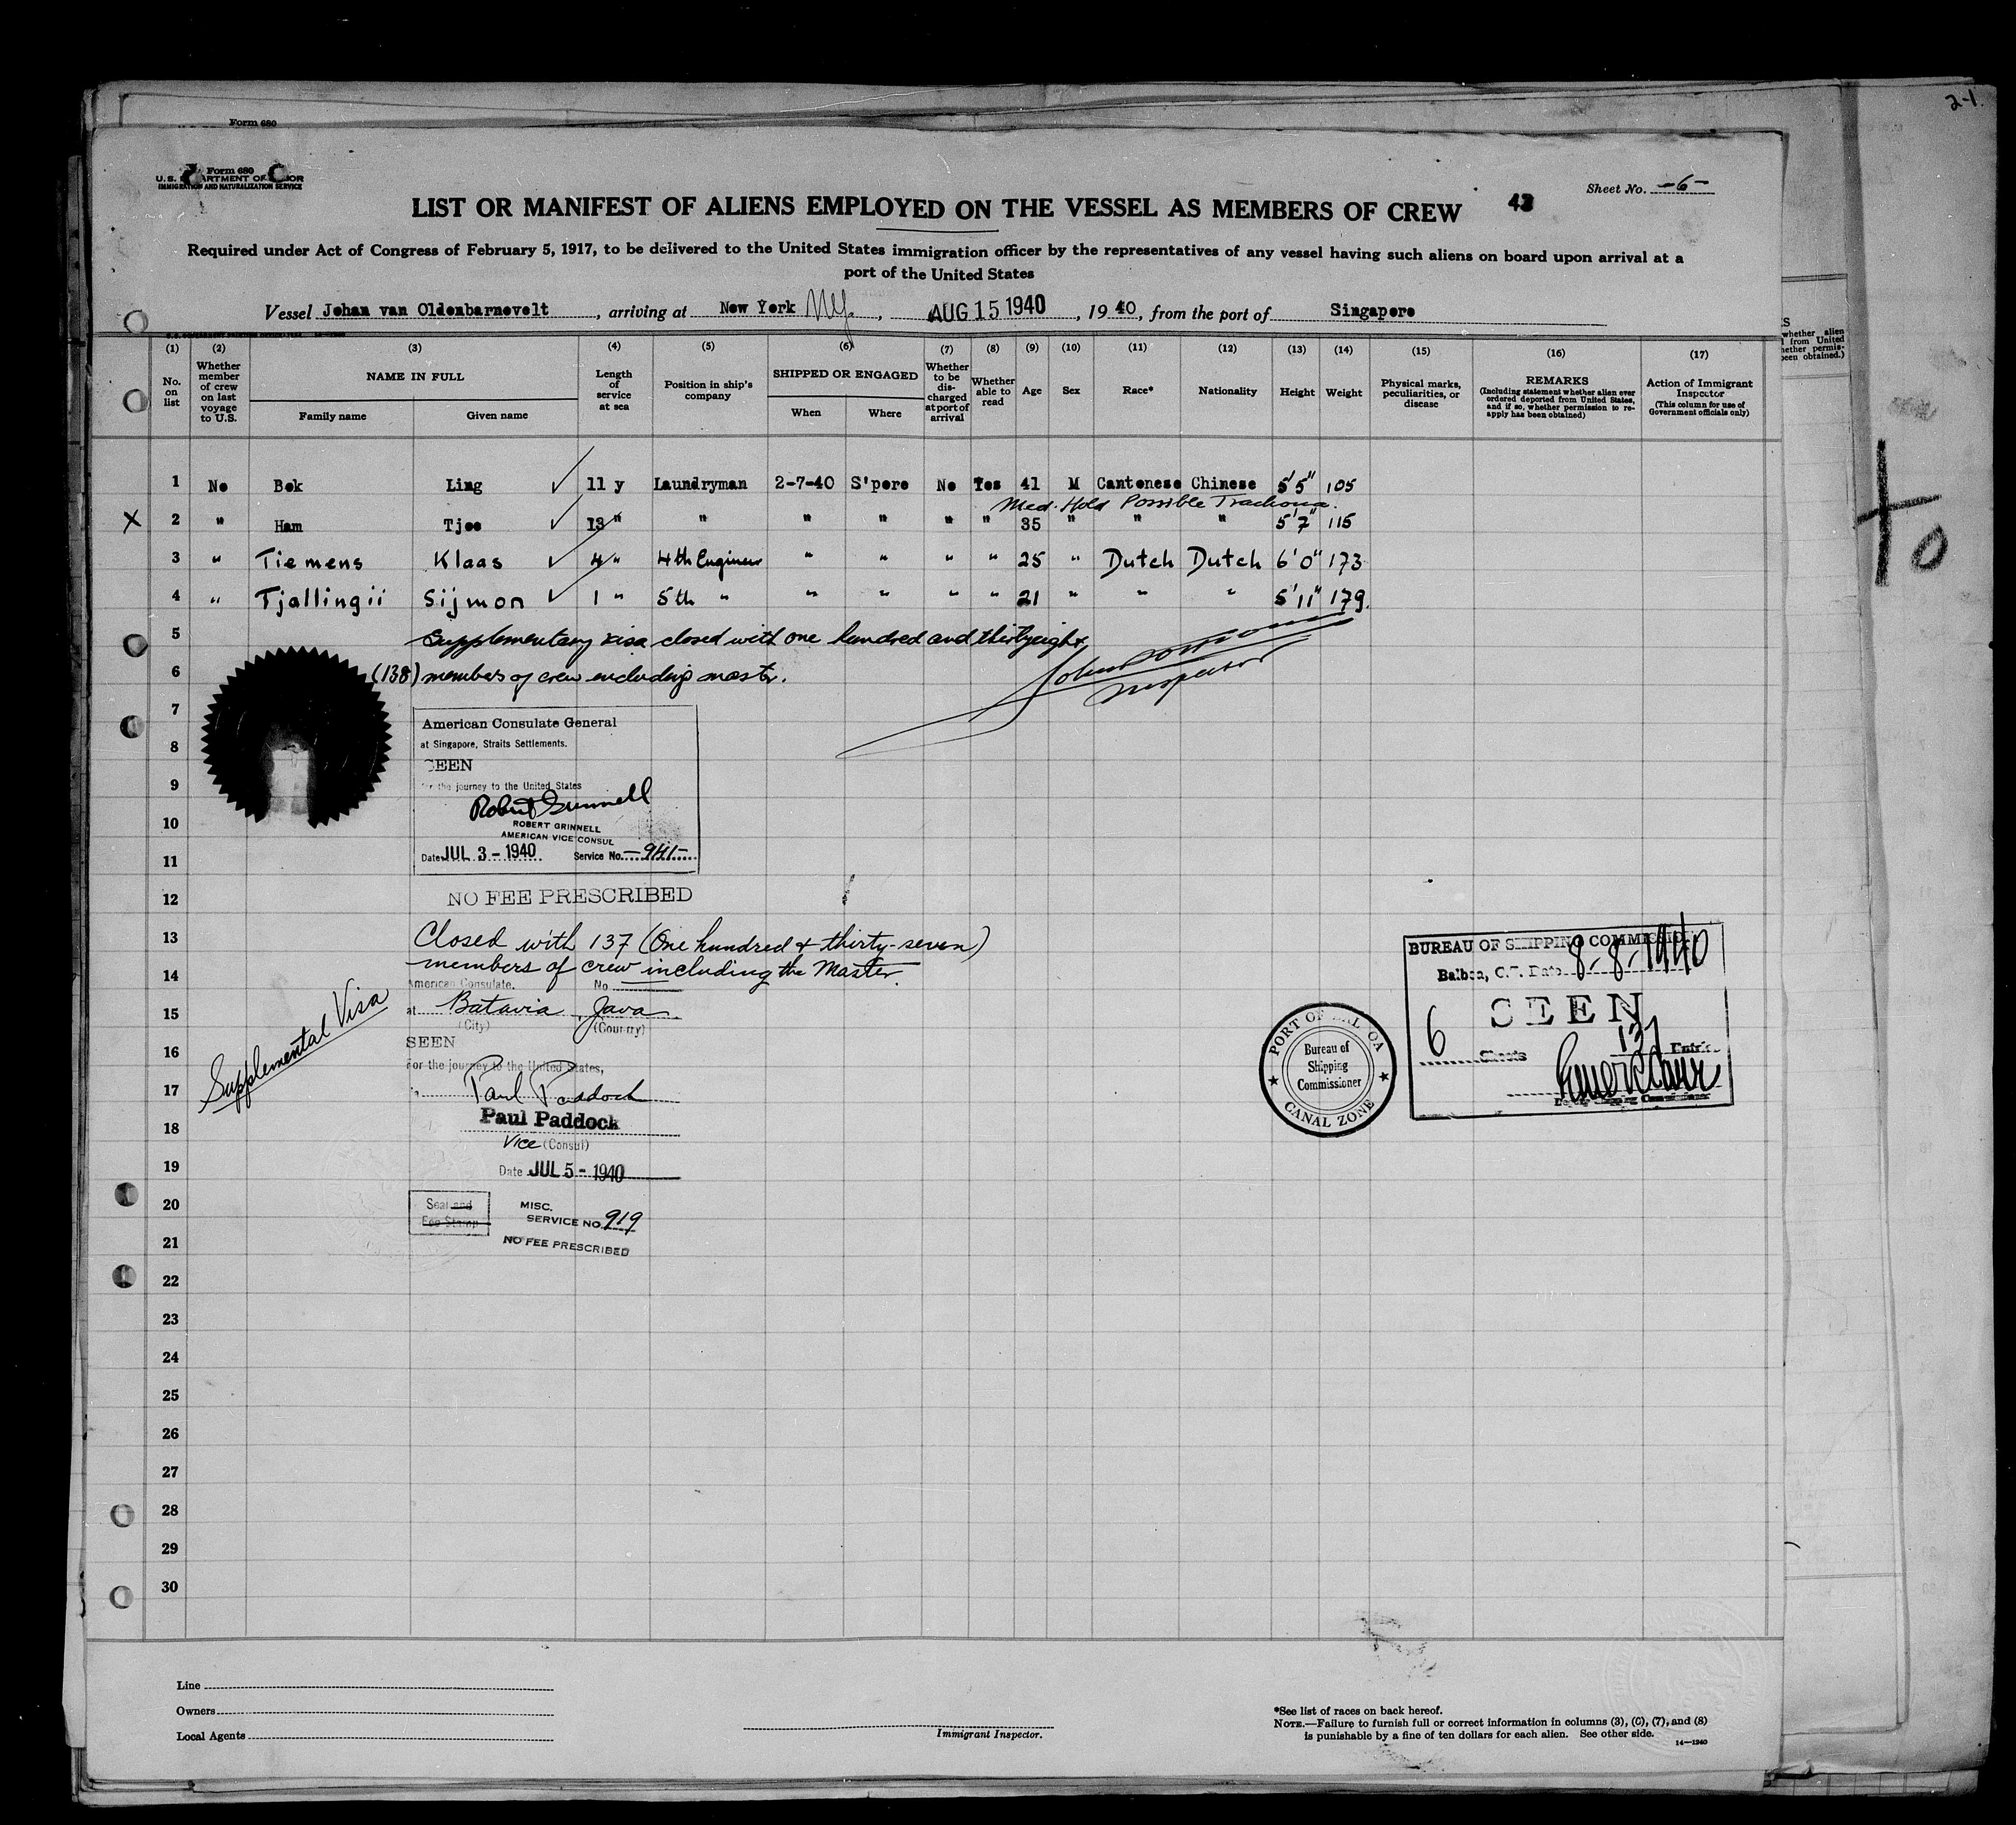 2-1
Form 680
Form 680
U.S. DEPARTMENT OF LABOR
IMMIGRATION AND NATURALIZATION SERVICE
Sheet No. -6-
LIST OR MANIFEST OF ALIENS EMPLOYED ON THE VESSEL AS MEMBERS OF CREW
43
Required under Act of Congress of February 5, 1917, to be delivered to the United States immigration officer by the representatives of any vessel having such aliens on board upon arrival at a
port of the United States
Vessel Johan van Oldenbarnevelt, arriving at New York NY., AUG 15 1940, 1940, from the port of Singapore
(1) (2) (3) (4) (5) (6) (7) (8) (9) (10) (11) (12) (13) (14) (15) (16) (17)
No. on list
Whether member of crew on last voyage to U.S.
NAME IN FULL
Family name
Given name
Length of service at sea
Position in ship's company
SHIPPED OR ENGAGED
When
Where
Whether to be discharged at port of arrival
Whether able to read
Age
Sex
Race*
Nationality
Height
Weight
Physical marks, peculiarities, or disease
REMARKS
(Including statement whether alien ever ordered deported from United States, and if so, whether permission to reapply has been obtained)
Action of Immigrant Inspector
(This column for use of Government officials only)
1 No Bok Ling 11 y Laundryman 2-7-40 S'pore No Yes 41 M Cantonese Chinese 5'5" 105
Med. Hold Possible Trachoma.
X 2 " Ham Tjoe 13 " " " " " " 35 " " " 5'7" 115
3 " Tiemens Klaas 4 " 4th Engineer " " " " 25 " Dutch Dutch 6'0" 173
4 " Tjallingii Sijmon 1 " 5th " " " " " 21 " " " 5'11" 179.
5 Supplementary visa closed with one hundred and thirtyeight
6 (138) members of crew including master.
Inspector
7
American Consulate General
8 at Singapore, Straits Settlements.
SEEN
9 for the journey to the United States
Robert Grinnell
10 ROBERT GRINNELL
AMERICAN VICE CONSUL
11 Date JUL 3 - 1940 Service No. -941-
12 NO FEE PRESCRIBED
13 Closed with 137 (One hundred & thirty-seven)
14 members of crew including the Master.
American Consulate, No
15 at Batavia, Java
(City) (Country)
16 SEEN
For the journey to the United States,
17 Paul Paddock
Paul Paddock
18 Vice (Consul)
19 Date JUL 5 - 1940
20 Seal and Fee Stamp
MISC. SERVICE NO. 919
21 NO FEE PRESCRIBED
Supplemental Visa
BUREAU OF SHIPPING COMMISSIO
Balboa, C.Z. Date 8-8-1940
SEEN
6 Sheets 137 Entries
Deputy Shipping Commissioner
PORT OF BALBOA
Bureau of
Shipping
Commissioner
CANAL ZONE
22
23
24
25
26
27
28
29
30
Line
Owners
Local Agents
Immigrant Inspector.
*See list of races on back hereof.
NOTE.—Failure to furnish full or correct information in columns (3), (6), (7), and (8)
is punishable by a fine of ten dollars for each alien. See other side.
14—1240